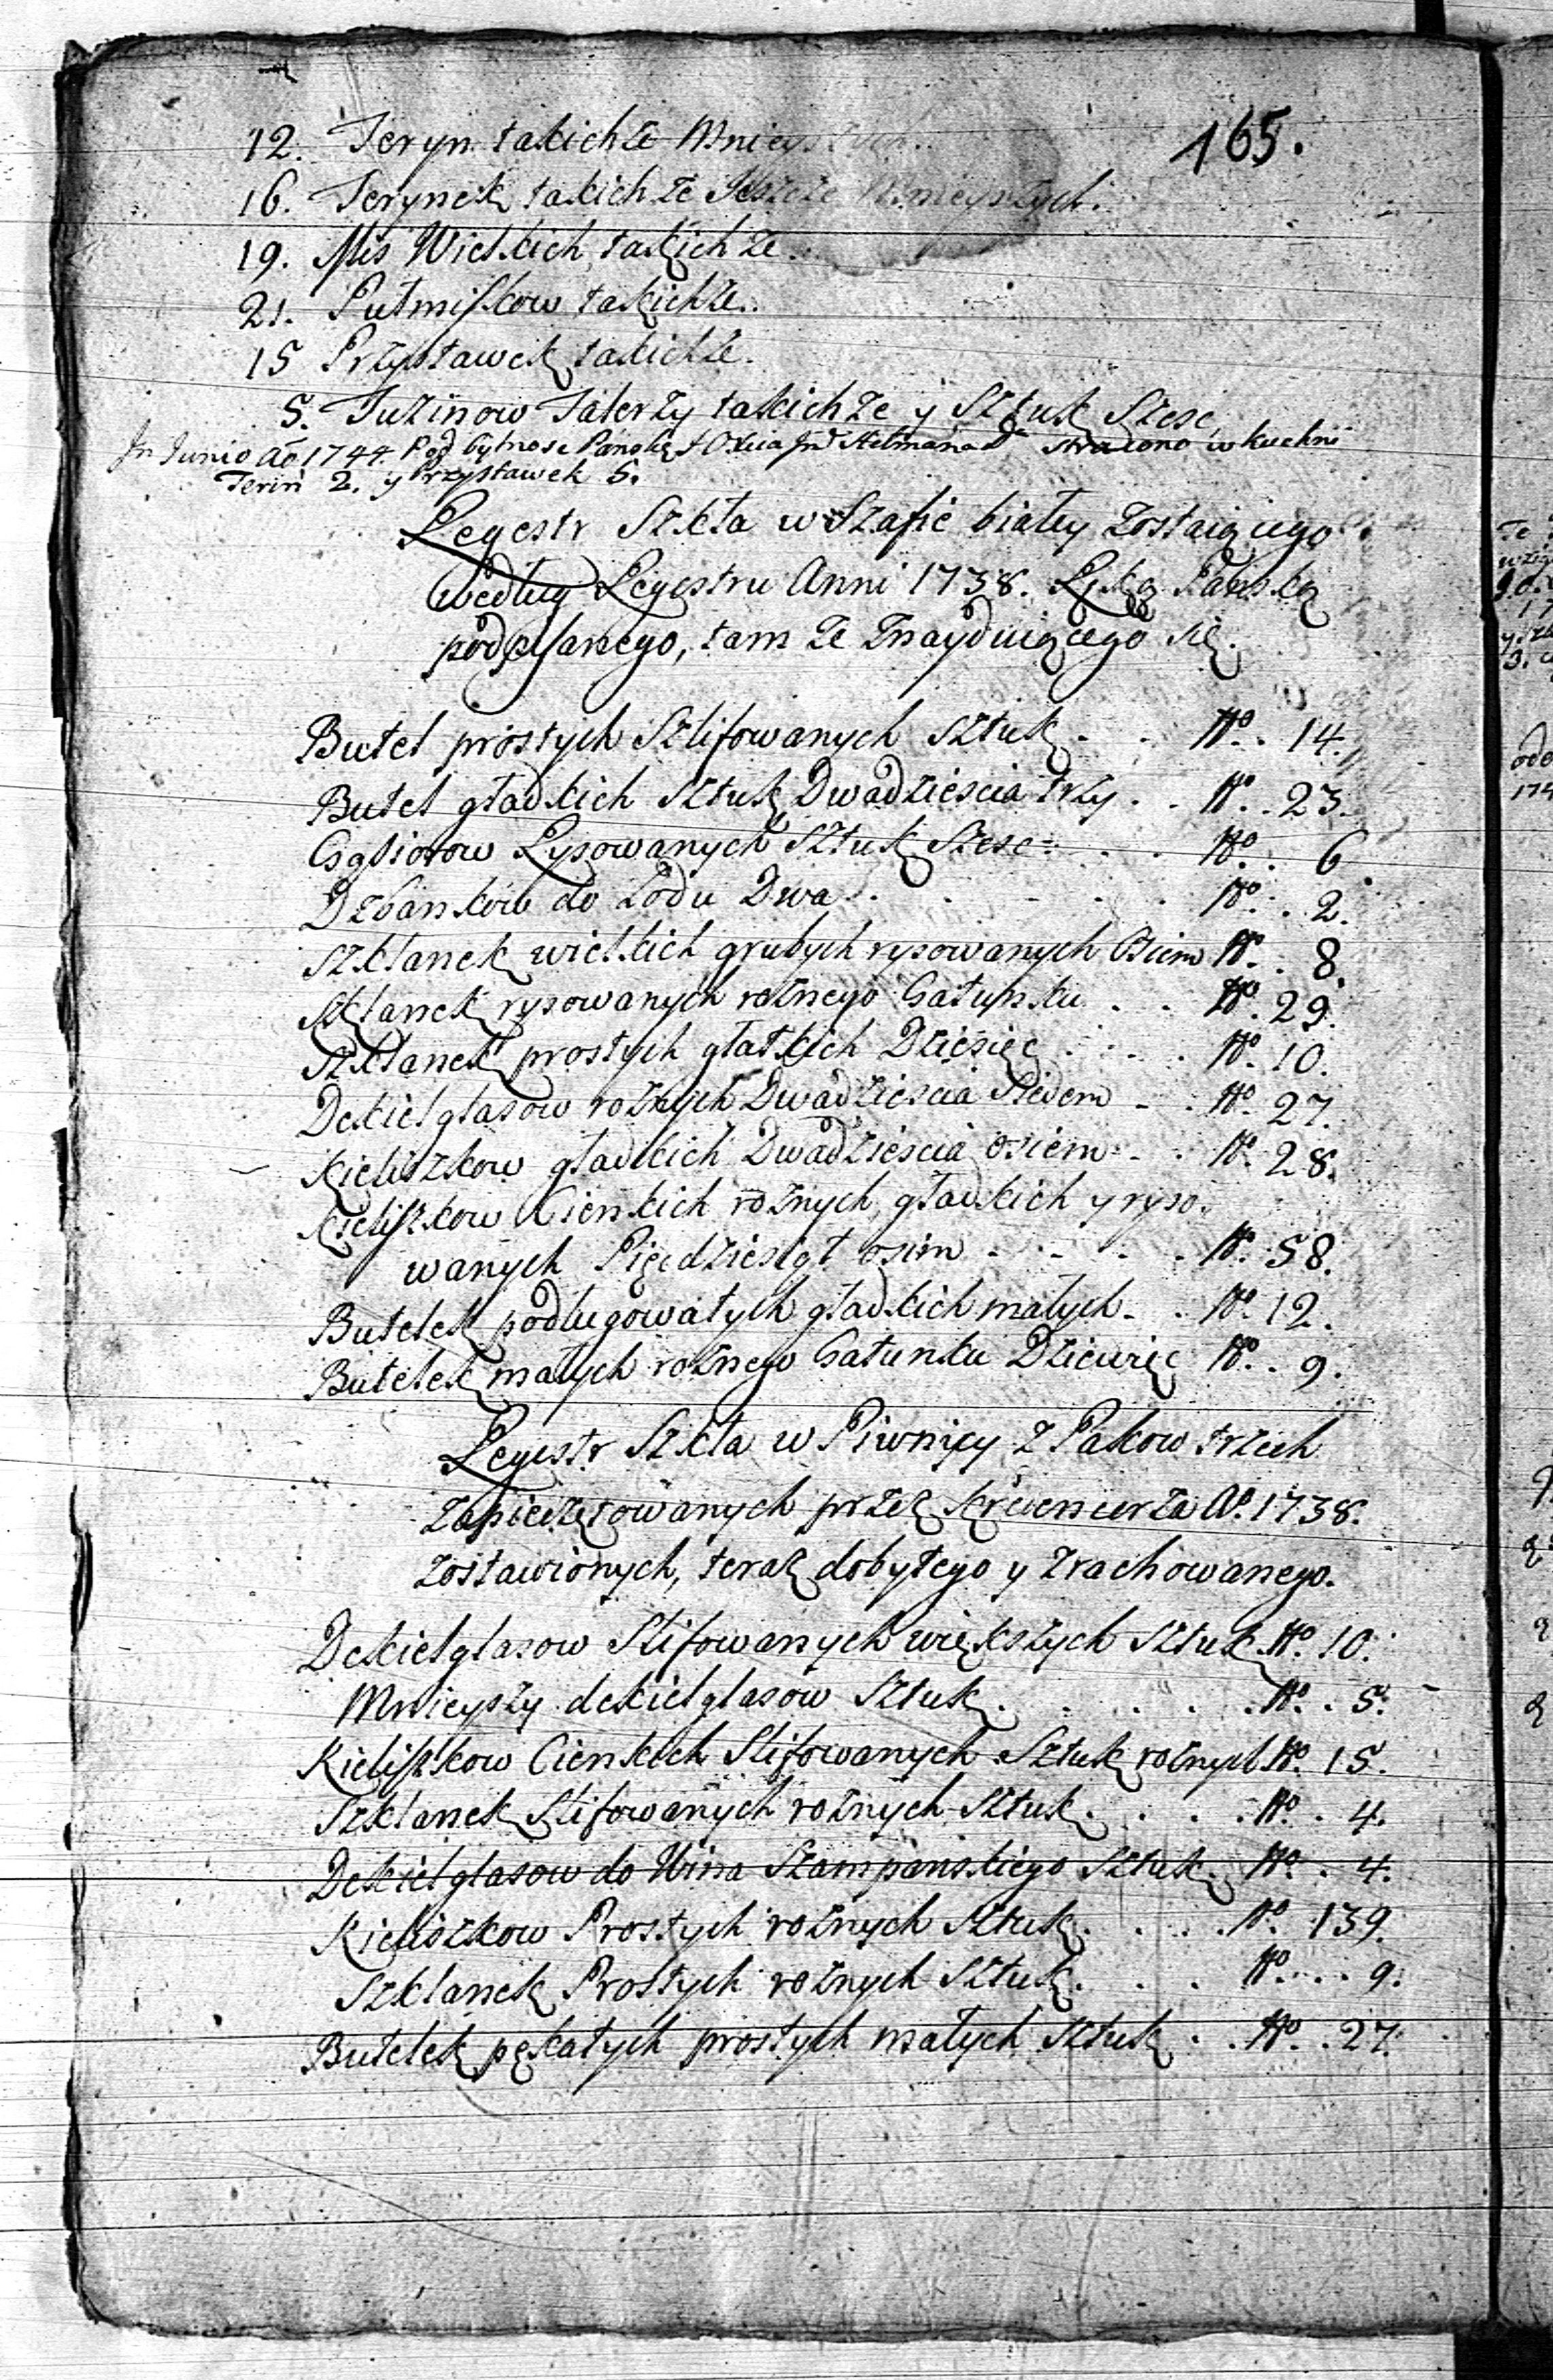 165.
12. Teryn takichże Mnieyszych.
16. Terynek takichże Jeszcze Mnieyszych.
19. Mis Wielkich takichże.
21. Pułmiskow takichże.
15 Przystawek takichże.
5. Tuzinow Talerzy takichże y Sztuk Szesc
In Junio Ao 1744. Pod bytnosc Panską Hetmana stracono w kuchni
Terin 2. y Przystawek 5.
Regestr Szkła w Szafie białey zostaiącego
według Regestru Anni 1738. Ręką Pańską
podpisanego, tam że Znayduiącego się.
Butel prostych Szlifowanych Sztuk . . No. . 14.
Butel gładkich Sztuk Dwadzieścia trzy . . No. . 23.
Gąsiorow Rysowanych Sztuk Szesc . . No. . 6
Dzbanków do Lodu Dwa . . . . . No. . 2.
Szklanek wielkich grubych rysowanych Osiem No. . 8.
Szklanek rysowanych rożnego Gatunku . . No. 29.
Szklanek prostych głatkich Dziesięć . . . No. 10.
Dekielglasow rożnych Dwadzieścia Siedem - . No. 27.
Kieliszkow gładkich Dwadzieścia osiem - . No. 28.
Kieliszkow Cienkich rożnych, gładkich y ryso.
wanych Pięcdziesiąt osim - . - . . No. 58.
Butelek podługowatych gładkich małych . . No. 12.
Butelek małych rożnego Gatunku Dziewięć No. . 9.
Regestr Szkła w Piwnicy z Pakow trzech
zapieczętowanych przez Kredencerza Ao. 1738.
zostawionych, teraz dobytego y zrachowanego.
Dekielglasow Slifowanych większych Sztuk No. 10.
Mnieyszy dekielglasow Sztuk . . . . . No. . 5.
Kieliszkow Cienkich Slifowanych Sztuk rożnych No. 15.
Szklanek Slifowanych rożnych Sztuk . . . . No. . 4.
Dekielglasow do Wina Szampańskiego Sztuk . No. . 4.
Kieliszkow Prostych rożnych Sztuk . . . . No. 139.
Szklanek Prostych rożnych Sztuk . . . No. . . . 9.
Butelek pękatych prostych małych Sztuk . . No. . 27.